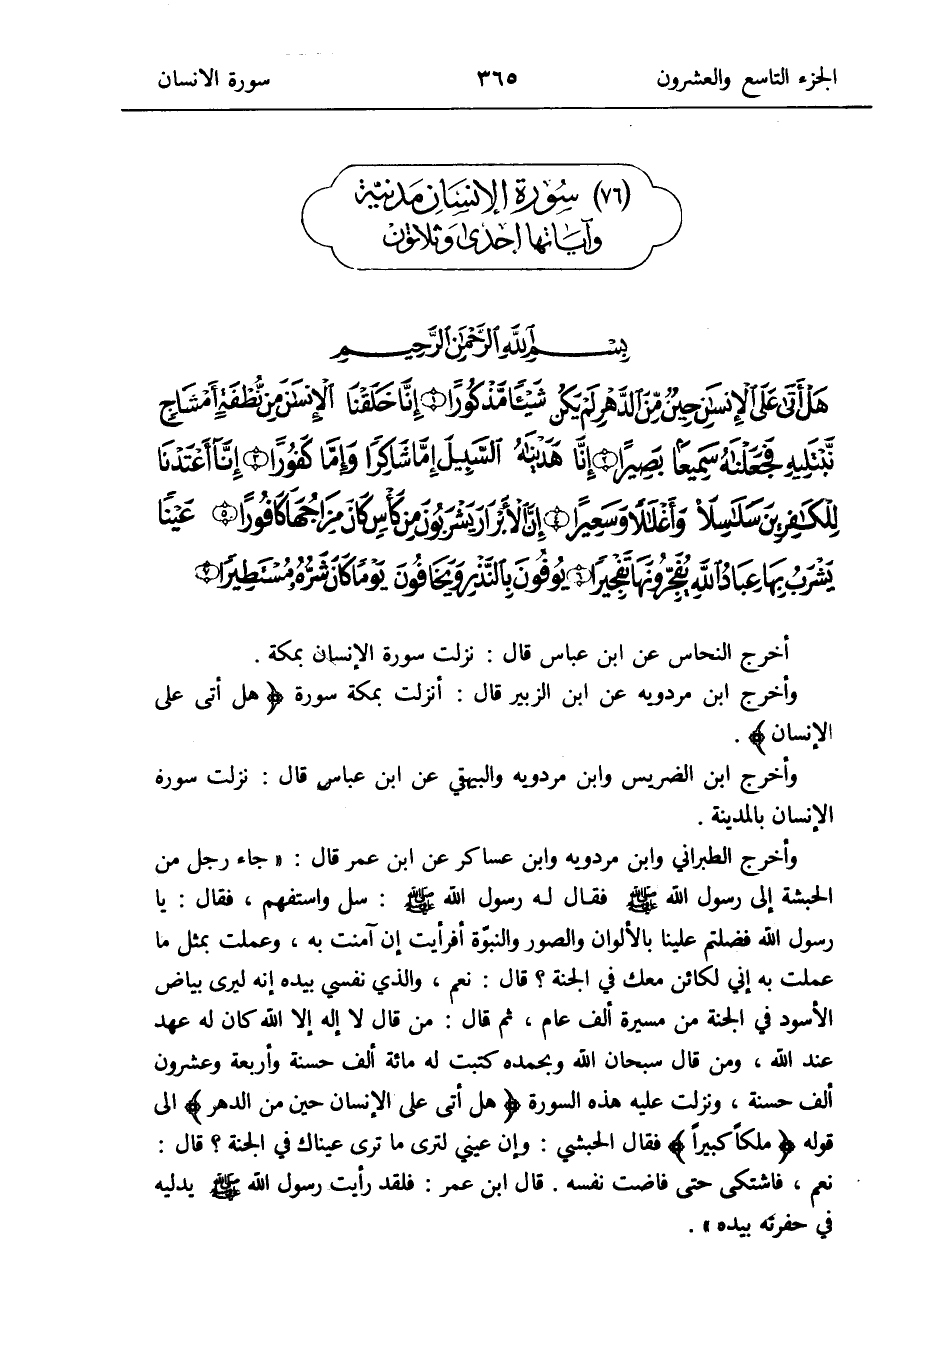 الجزء التاسع والعشرون ٣٦٥ سورة الانسان
(٧٦) سُورَة الإنسَان مَدنيّة
وآياتها إحْدى وَثلاثون
بِسْمِ ٱللَّهِ ٱلرَّحْمَٰنِ ٱلرَّحِيمِ
هَلْ أَتَىٰ عَلَى ٱلْإِنسَٰنِ حِينٌ مِّنَ ٱلدَّهْرِ لَمْ يَكُن شَيْـًٔا مَّذْكُورًا ۝١ إِنَّا خَلَقْنَا ٱلْإِنسَٰنَ مِن نُّطْفَةٍ أَمْشَاجٍ
نَّبْتَلِيهِ فَجَعَلْنَٰهُ سَمِيعًۢا بَصِيرًا ۝٢ إِنَّا هَدَيْنَٰهُ ٱلسَّبِيلَ إِمَّا شَاكِرًا وَإِمَّا كَفُورًا ۝٣ إِنَّآ أَعْتَدْنَا
لِلْكَٰفِرِينَ سَلَٰسِلَا۟ وَأَغْلَٰلًا وَسَعِيرًا ۝٤ إِنَّ ٱلْأَبْرَارَ يَشْرَبُونَ مِن كَأْسٍ كَانَ مِزَاجُهَا كَافُورًا ۝٥ عَيْنًا
يَشْرَبُ بِهَا عِبَادُ ٱللَّهِ يُفَجِّرُونَهَا تَفْجِيرًا ۝٦ يُوفُونَ بِٱلنَّذْرِ وَيَخَافُونَ يَوْمًا كَانَ شَرُّهُۥ مُسْتَطِيرًا ۝٧
أخرج النحاس عن ابن عباس قال : نزلت سورة الإنسان بمكة .
وأخرج ابن مردويه عن ابن الزبير قال : أنزلت بمكة سورة ﴿ هل أتى على
الإنسان ﴾ .
وأخرج ابن الضريس وابن مردويه والبيهقي عن ابن عباس قال : نزلت سورة
الإنسان بالمدينة .
وأخرج الطبراني وابن مردويه وابن عساكر عن ابن عمر قال : « جاء رجل من
الحبشة إلى رسول الله ﷺ فقال له رسول الله ﷺ : سل واستفهم ، فقال : يا
رسول الله فضلتم علينا بالألوان والصور والنبوّة أفرأيت إن آمنت به ، وعملت بمثل ما
عملت به إني لكائن معك في الجنة ؟ قال : نعم ، والذي نفسي بيده إنه ليرى بياض
الأسود في الجنة من مسيرة ألف عام ، ثم قال : من قال لا إله إلا الله كان له عهد
عند الله ، ومن قال سبحان الله وبحمده كتبت له مائة ألف حسنة وأربعة وعشرون
ألف حسنة ، ونزلت عليه هذه السورة ﴿ هل أتى على الإنسان حين من الدهر ﴾ الى
قوله ﴿ ملكاً كبيراً ﴾ فقال الحبشي : وإن عيني لترى ما ترى عيناك في الجنة ؟ قال :
نعم ، فاشتكى حتى فاضت نفسه . قال ابن عمر : فلقد رأيت رسول الله ﷺ يدليه
في حفرته بيده » .